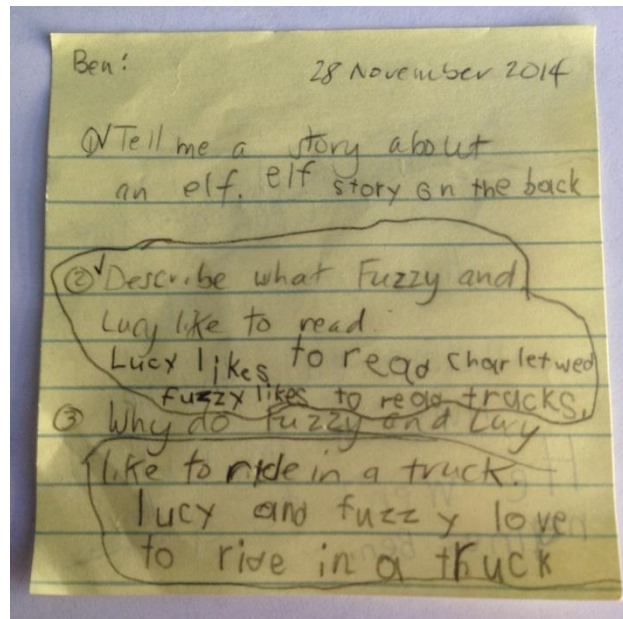 Ben:
28 November 2014
① Tell me a story about
an elf. elf story on the back
② Describe what Fuzzy and
Lucy like to read.
Lucy likes to read charletwed
fuzzy likes to read trucks.
③ Why do Fuzzy and Lucy
like to ride in a truck.
lucy and fuzzy love
to ride in a truck